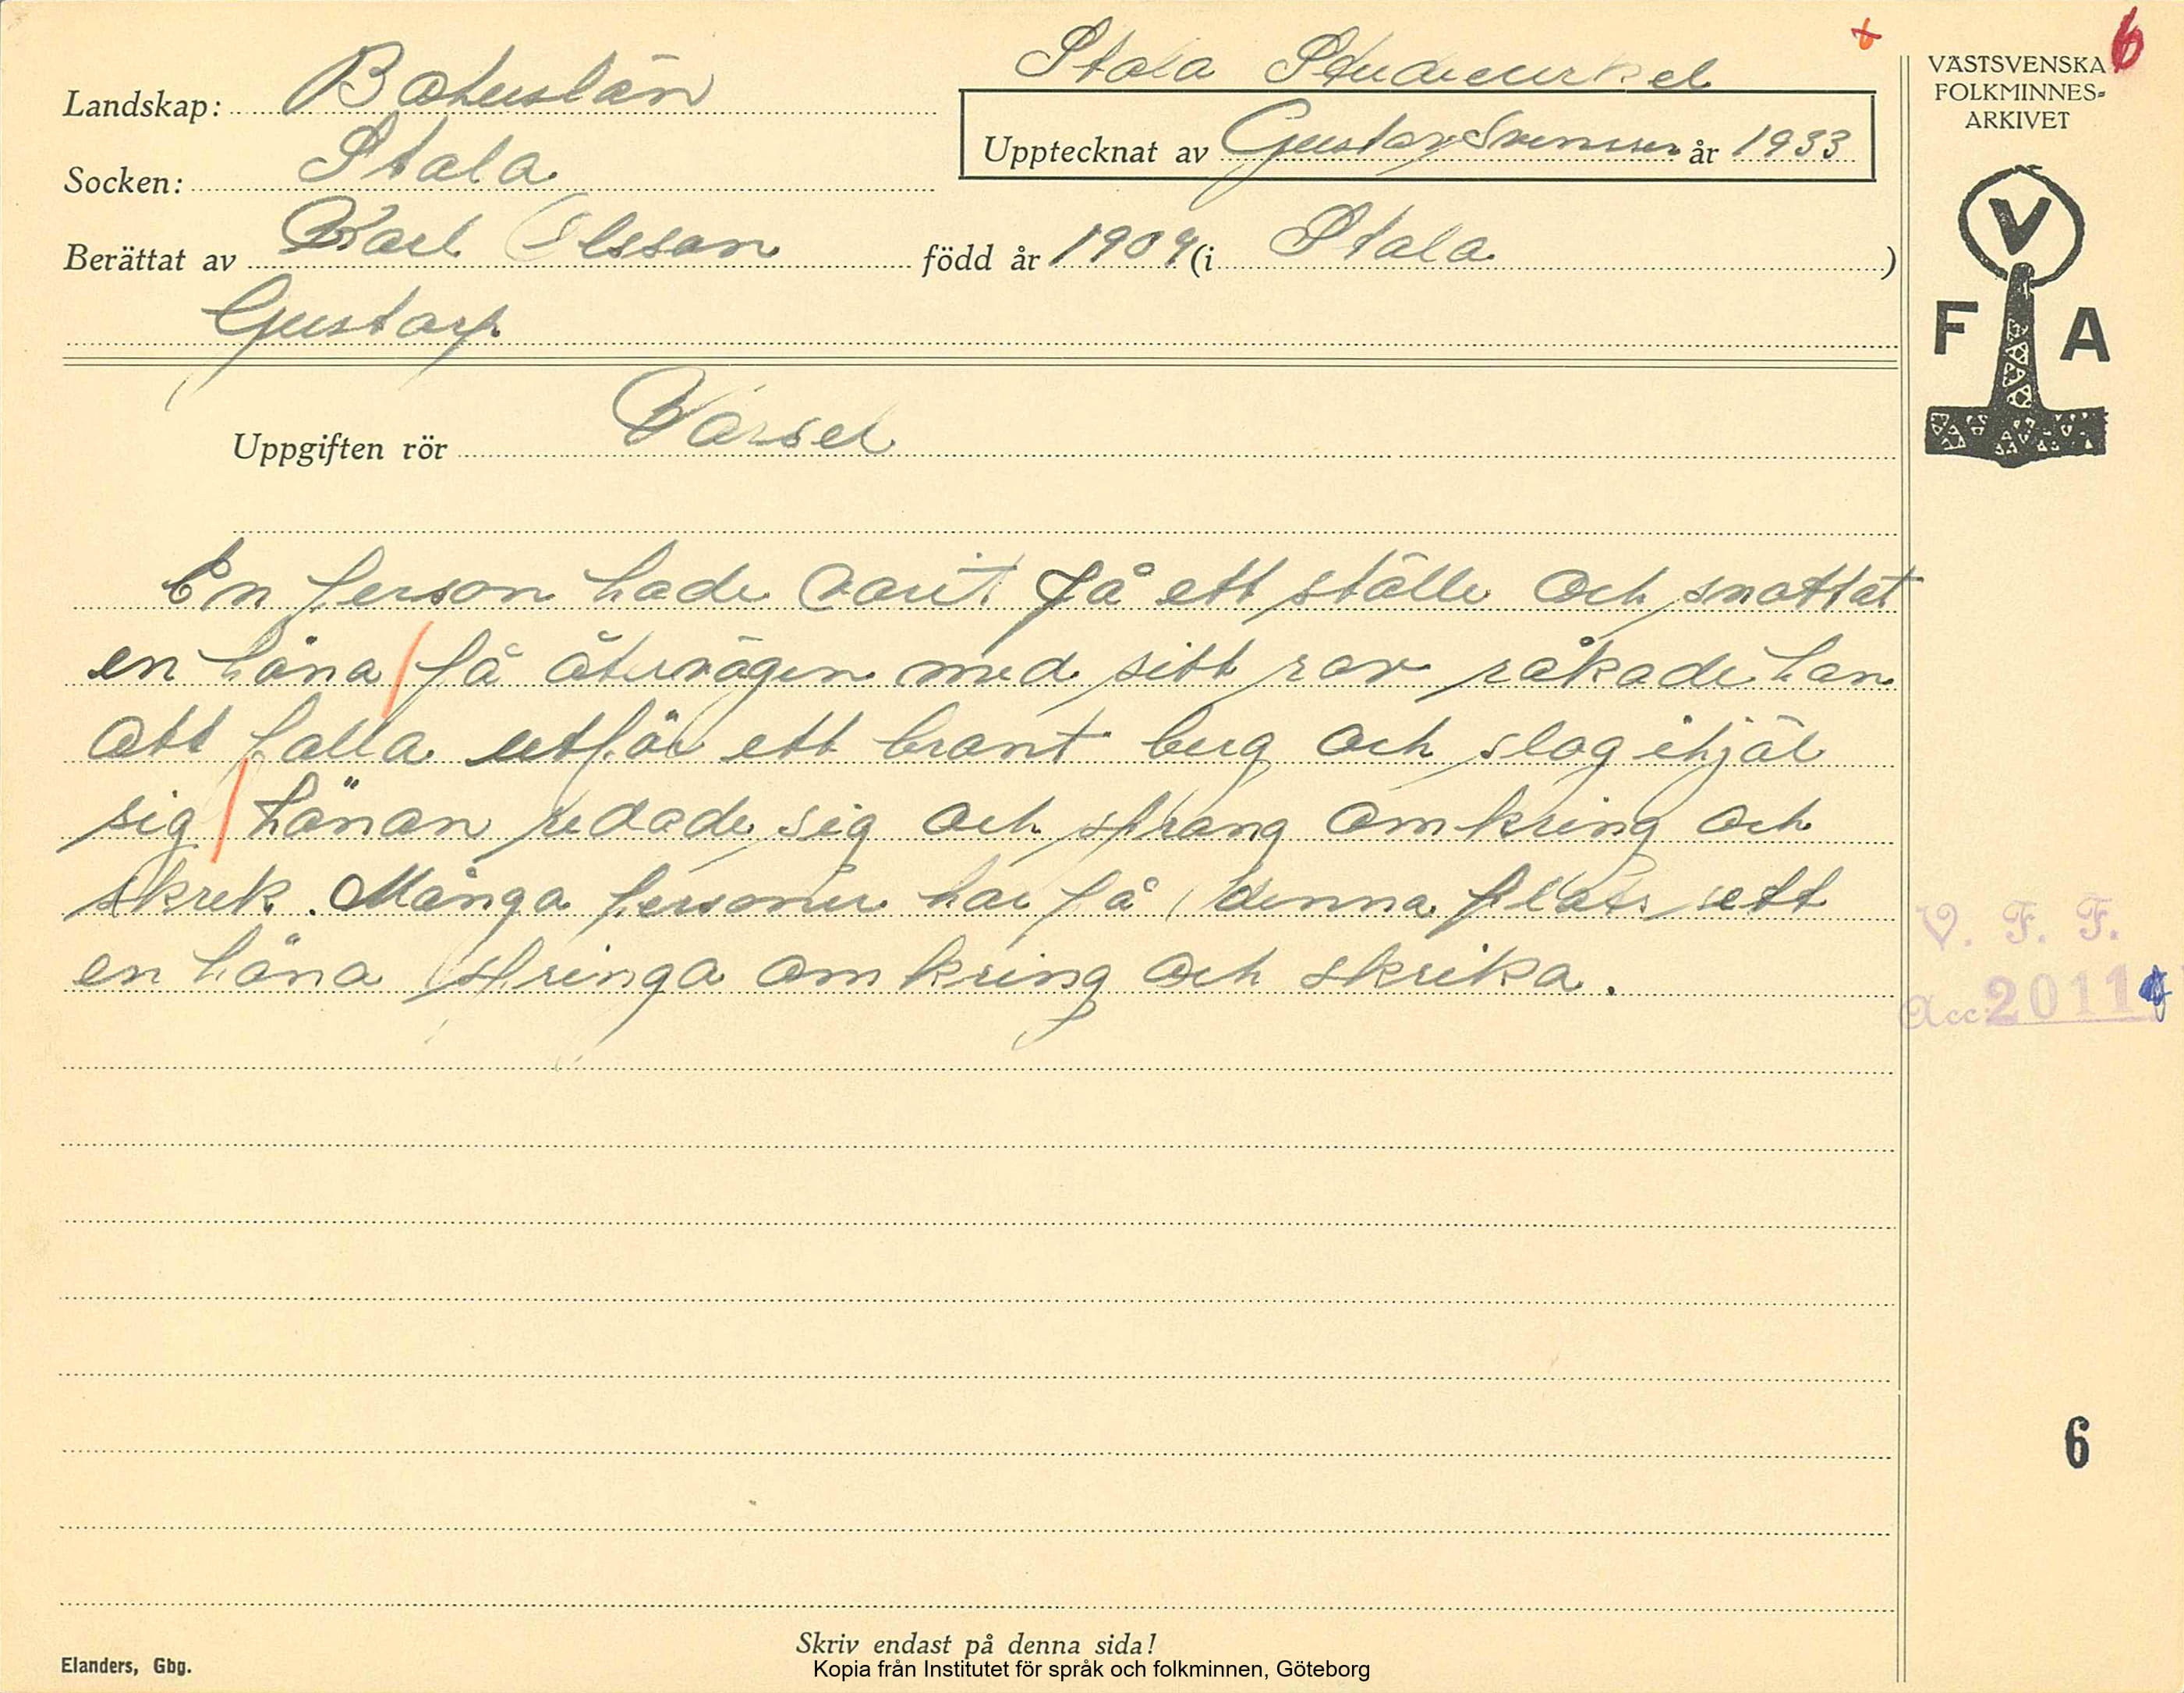 Stala Studiecirkel
6
VÄSTSVENSKA
FOLKMINNES-
ARKIVET
Landskap: Bohuslän
Upptecknat av Gustav Svenson år 1933
Socken: Stala
V
F A
Berättat av Karl Olsson född år 1909 (i Stala)
Gustorp.
Uppgiften rör Varsel
En person hade varit på ett ställe och snattat
en höna / på återvägen med sitt rov råkade han
att falla utför ett brant berg och slog ihjäl
sig / hönan redade sig och sprang omkring och
skrek. Många personer har på denna plats sett
en höna springa omkring och skrika.
V. F. F.
Acc: 2011
6
Skriv endast på denna sida!
Elanders, Gbg.
Kopia från Institutet för språk och folkminnen, Göteborg